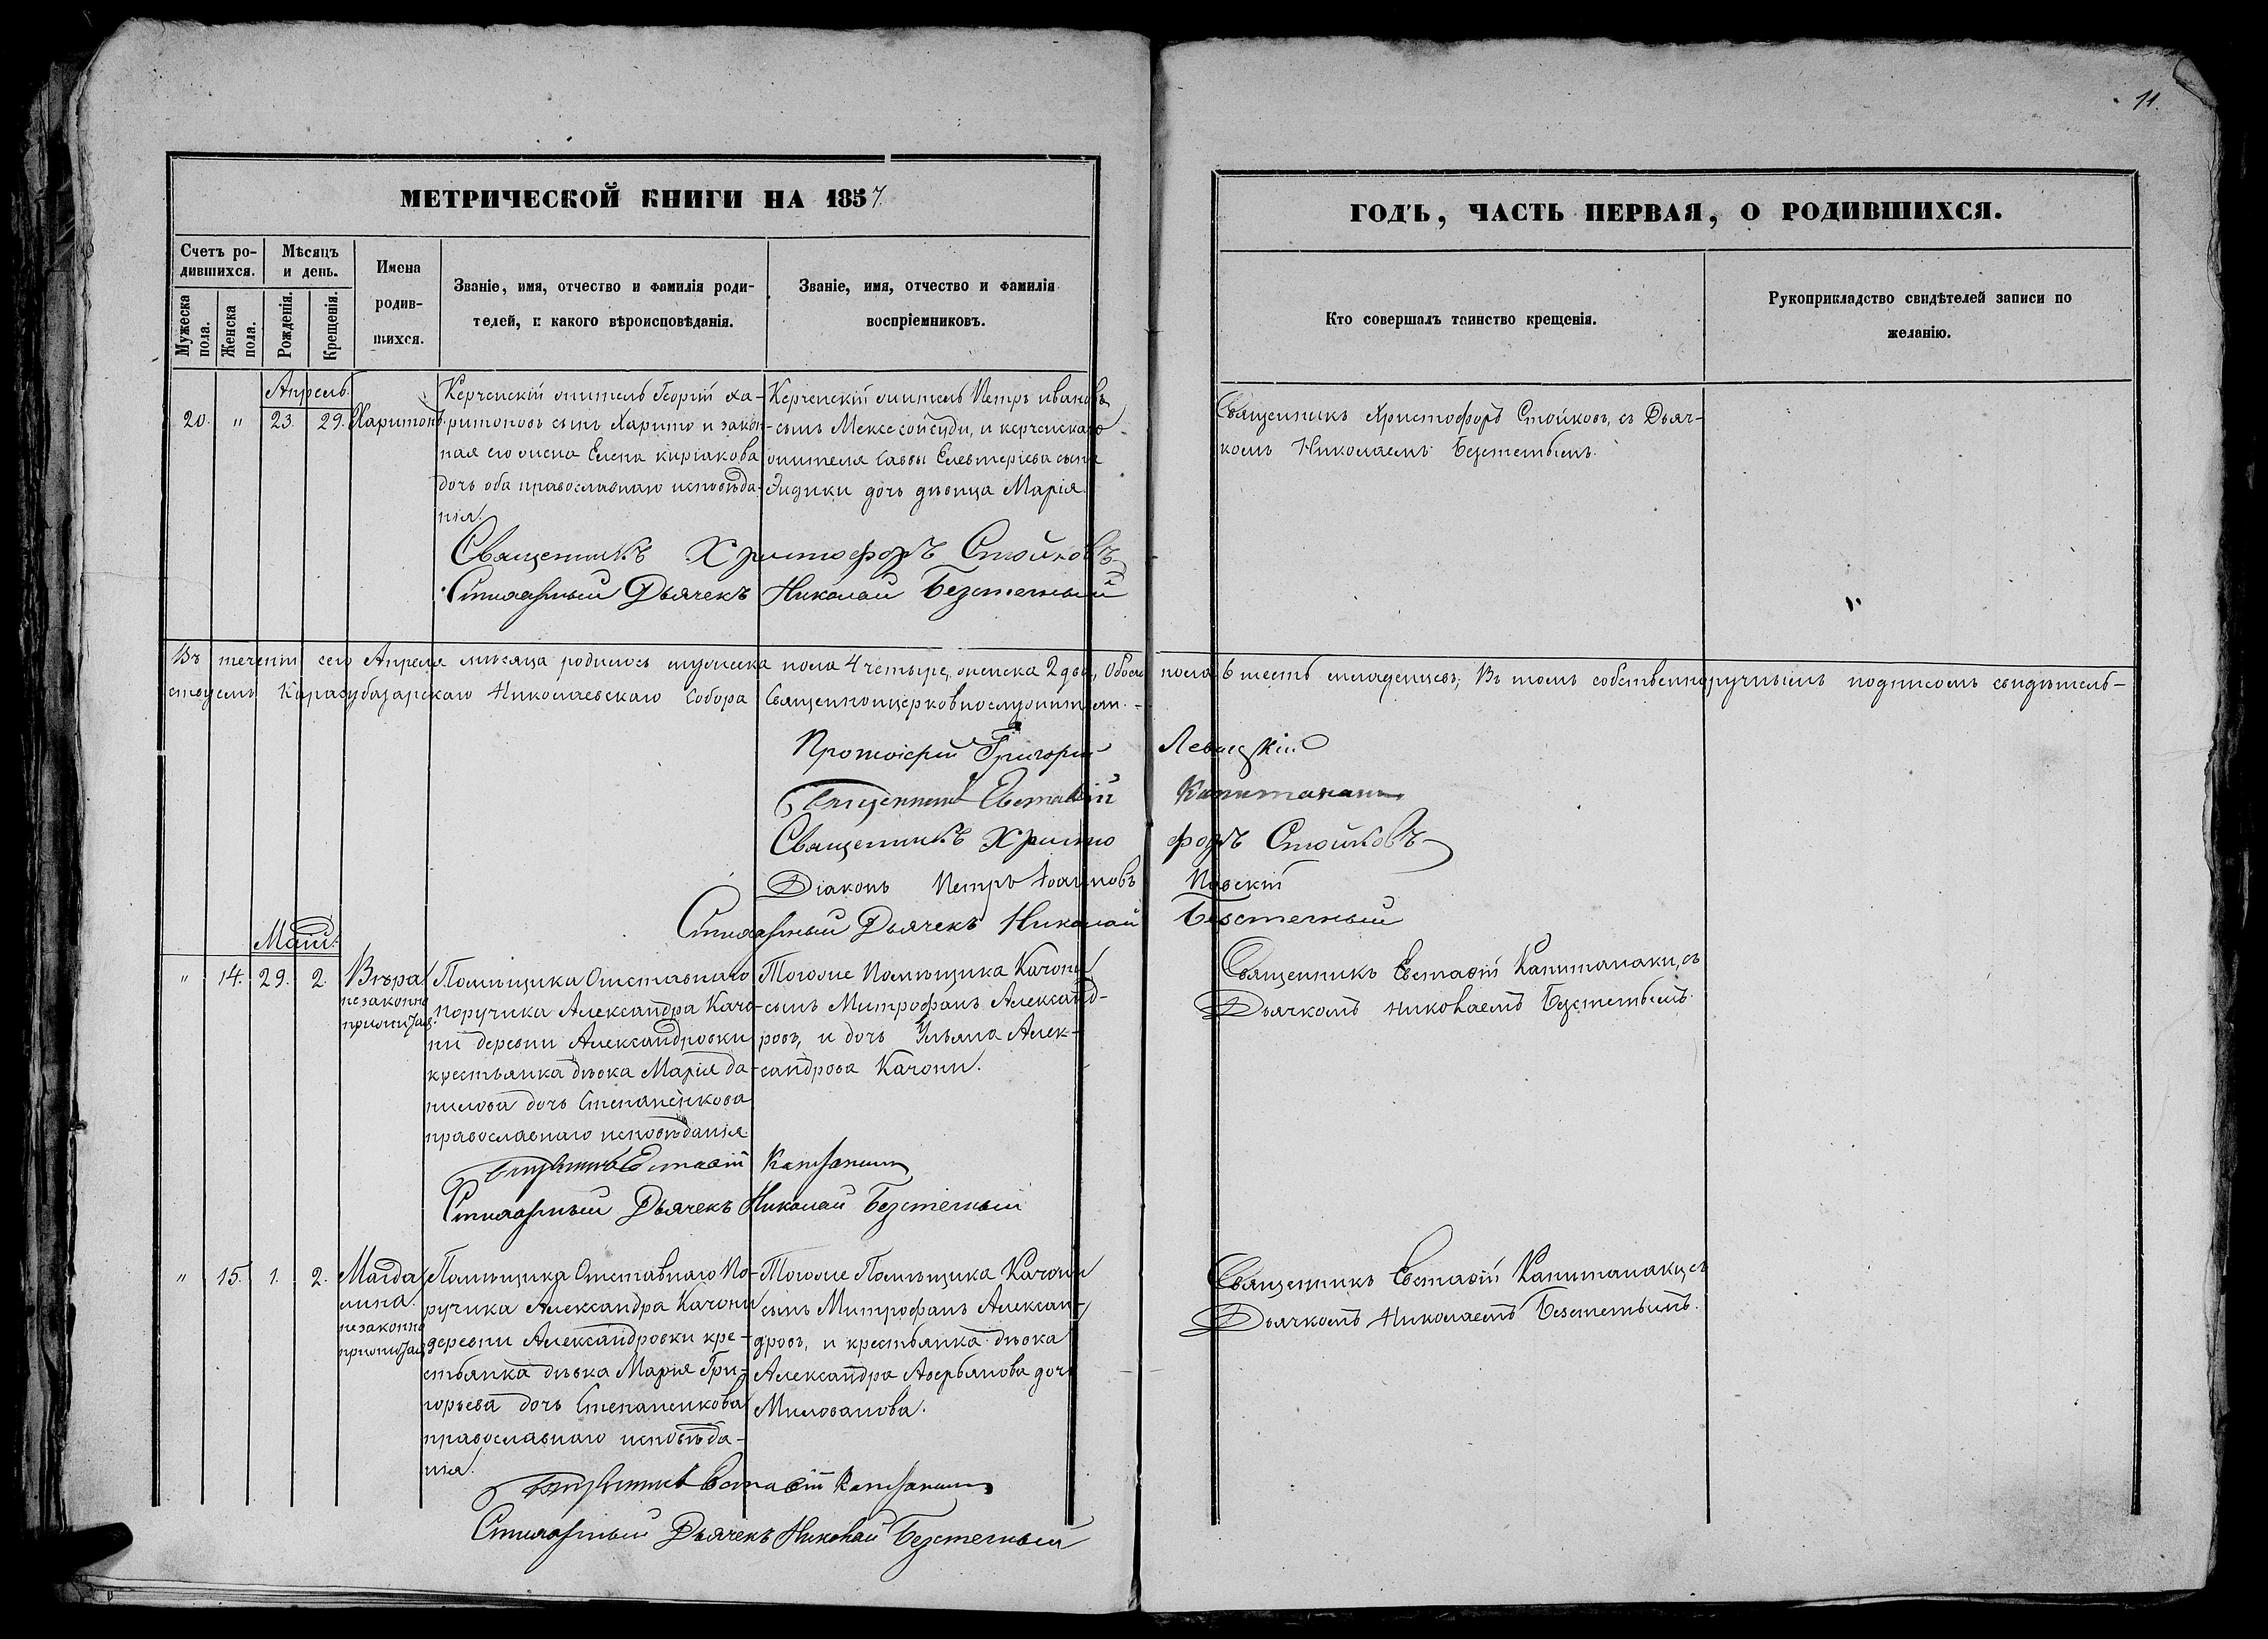 11.
МЕТРИЧЕСКОЙ КНИГИ НА 1857.
ГОДЪ, ЧАСТЬ ПЕРВАЯ, О РОДИВШИХСЯ.
Счетъ ро-
дившихся.
Мужеска
пола.
Женска
пола.
Мѣсяцъ
и день.
Рожденія.
Крещенія.
Имена
родив-
шихся.
Званіе, имя, отчество и фамилія роди-
телей, и какого вѣроисповѣданія.
Званіе, имя, отчество и фамилія
воспріемниковъ.
Кто совершалъ таинство крещенія.
Рукоприкладство свидѣтелей записи по
желанію.
Апрель.
20. " 23. 29. Харитонъ.
Керченскій житель Георгій Ха-
ритоновъ сынъ Харито и закон-
ная его жена Елена киріакова
дочь оба православнаго исповѣда-
нія.
Керченскій житель Петръ ивановъ
сынъ и керченскаго
жителя Саввы Елевтеріева сына
дочь дѣвица Марія.
Священникъ Христофоръ Стойковъ, съ Дьяч-
комъ Николаемъ Безстетнымъ.
Священникъ Христофоръ Стойковъ
Стихарный Дьячекъ Николай Безстетный
Въ теченіи сего Апреля мѣсяца родилось мужеска пола 4 четыре, женска 2 два, Обоего пола 6 шесть младенцевъ; Въ томъ собственноручнымъ подписомъ свидѣтель-
ствуемъ Карасубазарскаго Николаевскаго Собора Священноцерковнослужители.
Протоіерей Григорій Левицкій
Священникъ Евстафій Капитанаки
Священникъ Христофоръ Стойковъ
Діаконъ Петръ Іоанновъ
Стихарный Дьячекъ Николай Безстетный
Маій.
" 14. 29. 2. Вѣра
незаконно
прижитая.
Помѣщика Отставнаго
поручика Александра Качо-
ни деревни Александровки
крестьянка дѣвка Марія Да-
нилова дочь Степаненкова
православнаго исповѣданія
Тогоже Помѣщика Качони
сынъ Митрофанъ Александ-
ровъ, и дочь Ульяна Алек-
сандрова Качони.
Священникъ Евстафій Капитанаки, съ
Дьячкомъ Николаемъ Безстетнымъ.
Священникъ Евстафій Капитанаки
Стихарный Дьячекъ Николай Безстетный
" 15. 1. 2. Магда
лина.
незаконно
прижитая.
Помѣщика Отставнаго По-
ручика Александра Качони
деревни Александровки кре-
стьянка дѣвка Марія Гри-
горьева дочь Степаненкова
православнаго исповѣда-
нія.
Тогоже Помѣщика Качони
сынъ Митрофанъ Алексан-
дровъ, и крестьянка дѣвка
Александра Аверьянова дочь
Милованова.
Священникъ Евстафій Капитанаки, съ
Дьячкомъ Николаемъ Безстетнымъ.
Священникъ Евстафій Капитанаки
Стихарный Дьячекъ Николай Безстетный